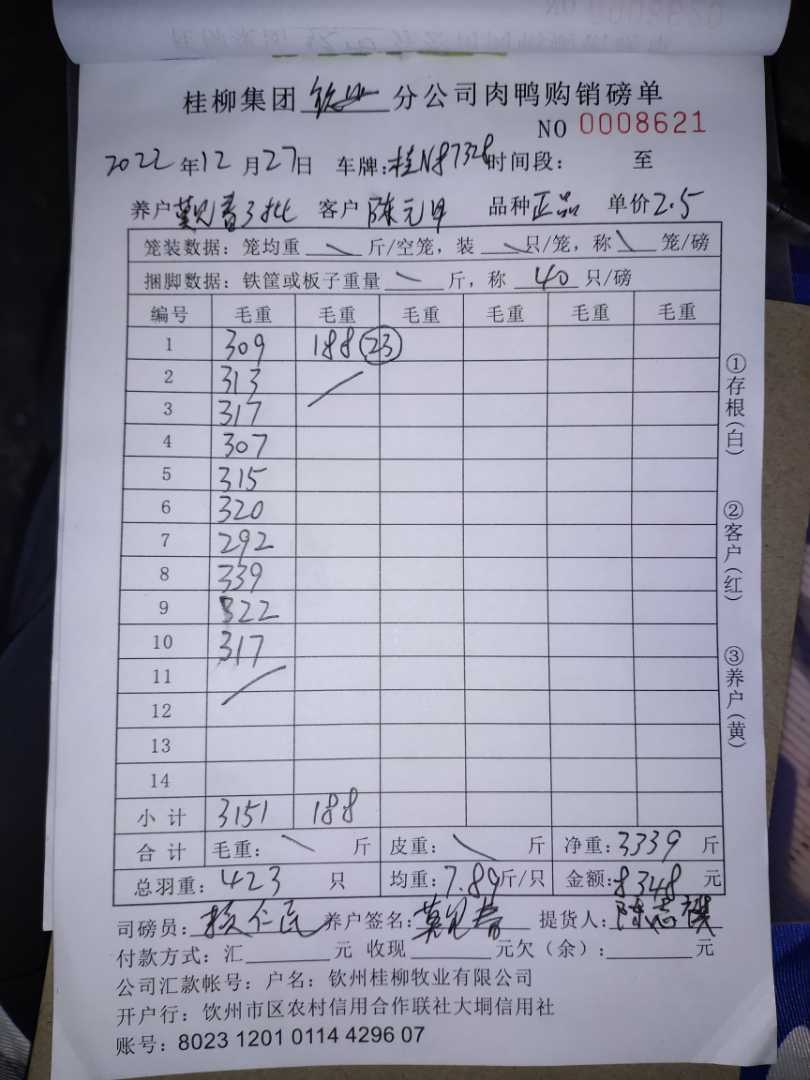 桂柳集团 钦业 分公司肉鸭购销磅单
NO 0008621
2022 年 12 月 27 日 车牌:桂N87328 时间段: 至
养户 春3批 客户 陈元 品种 正品 单价 2.5
笼装数据: 笼均重 \ 斤/空笼, 装 \ 只/笼, 称 \ 笼/磅
捆脚数据: 铁筐或板子重量 \ 斤, 称 40 只/磅
编号 毛重 毛重 毛重 毛重 毛重 毛重
1 309 188 (23)
2 313
3 317
4 307
5 315
6 320
7 292
8 339
9 322
10 317
11
12
13
14
小计 3151 188
合计 毛重: \ 斤 皮重: \ 斤 净重: 3339 斤
总羽重: 423 只 均重: 7.89 斤/只 金额: 8348 元
司磅员: 养户签名: 春 提货人: 陈
付款方式: 汇 元 收现 元欠(余): 元
公司汇款帐号: 户名: 钦州桂柳牧业有限公司
开户行: 钦州市区农村信用合作联社大垌信用社
账号: 8023 1201 0114 4296 07
①存根(白)
②客户(红)
③养户(黄)